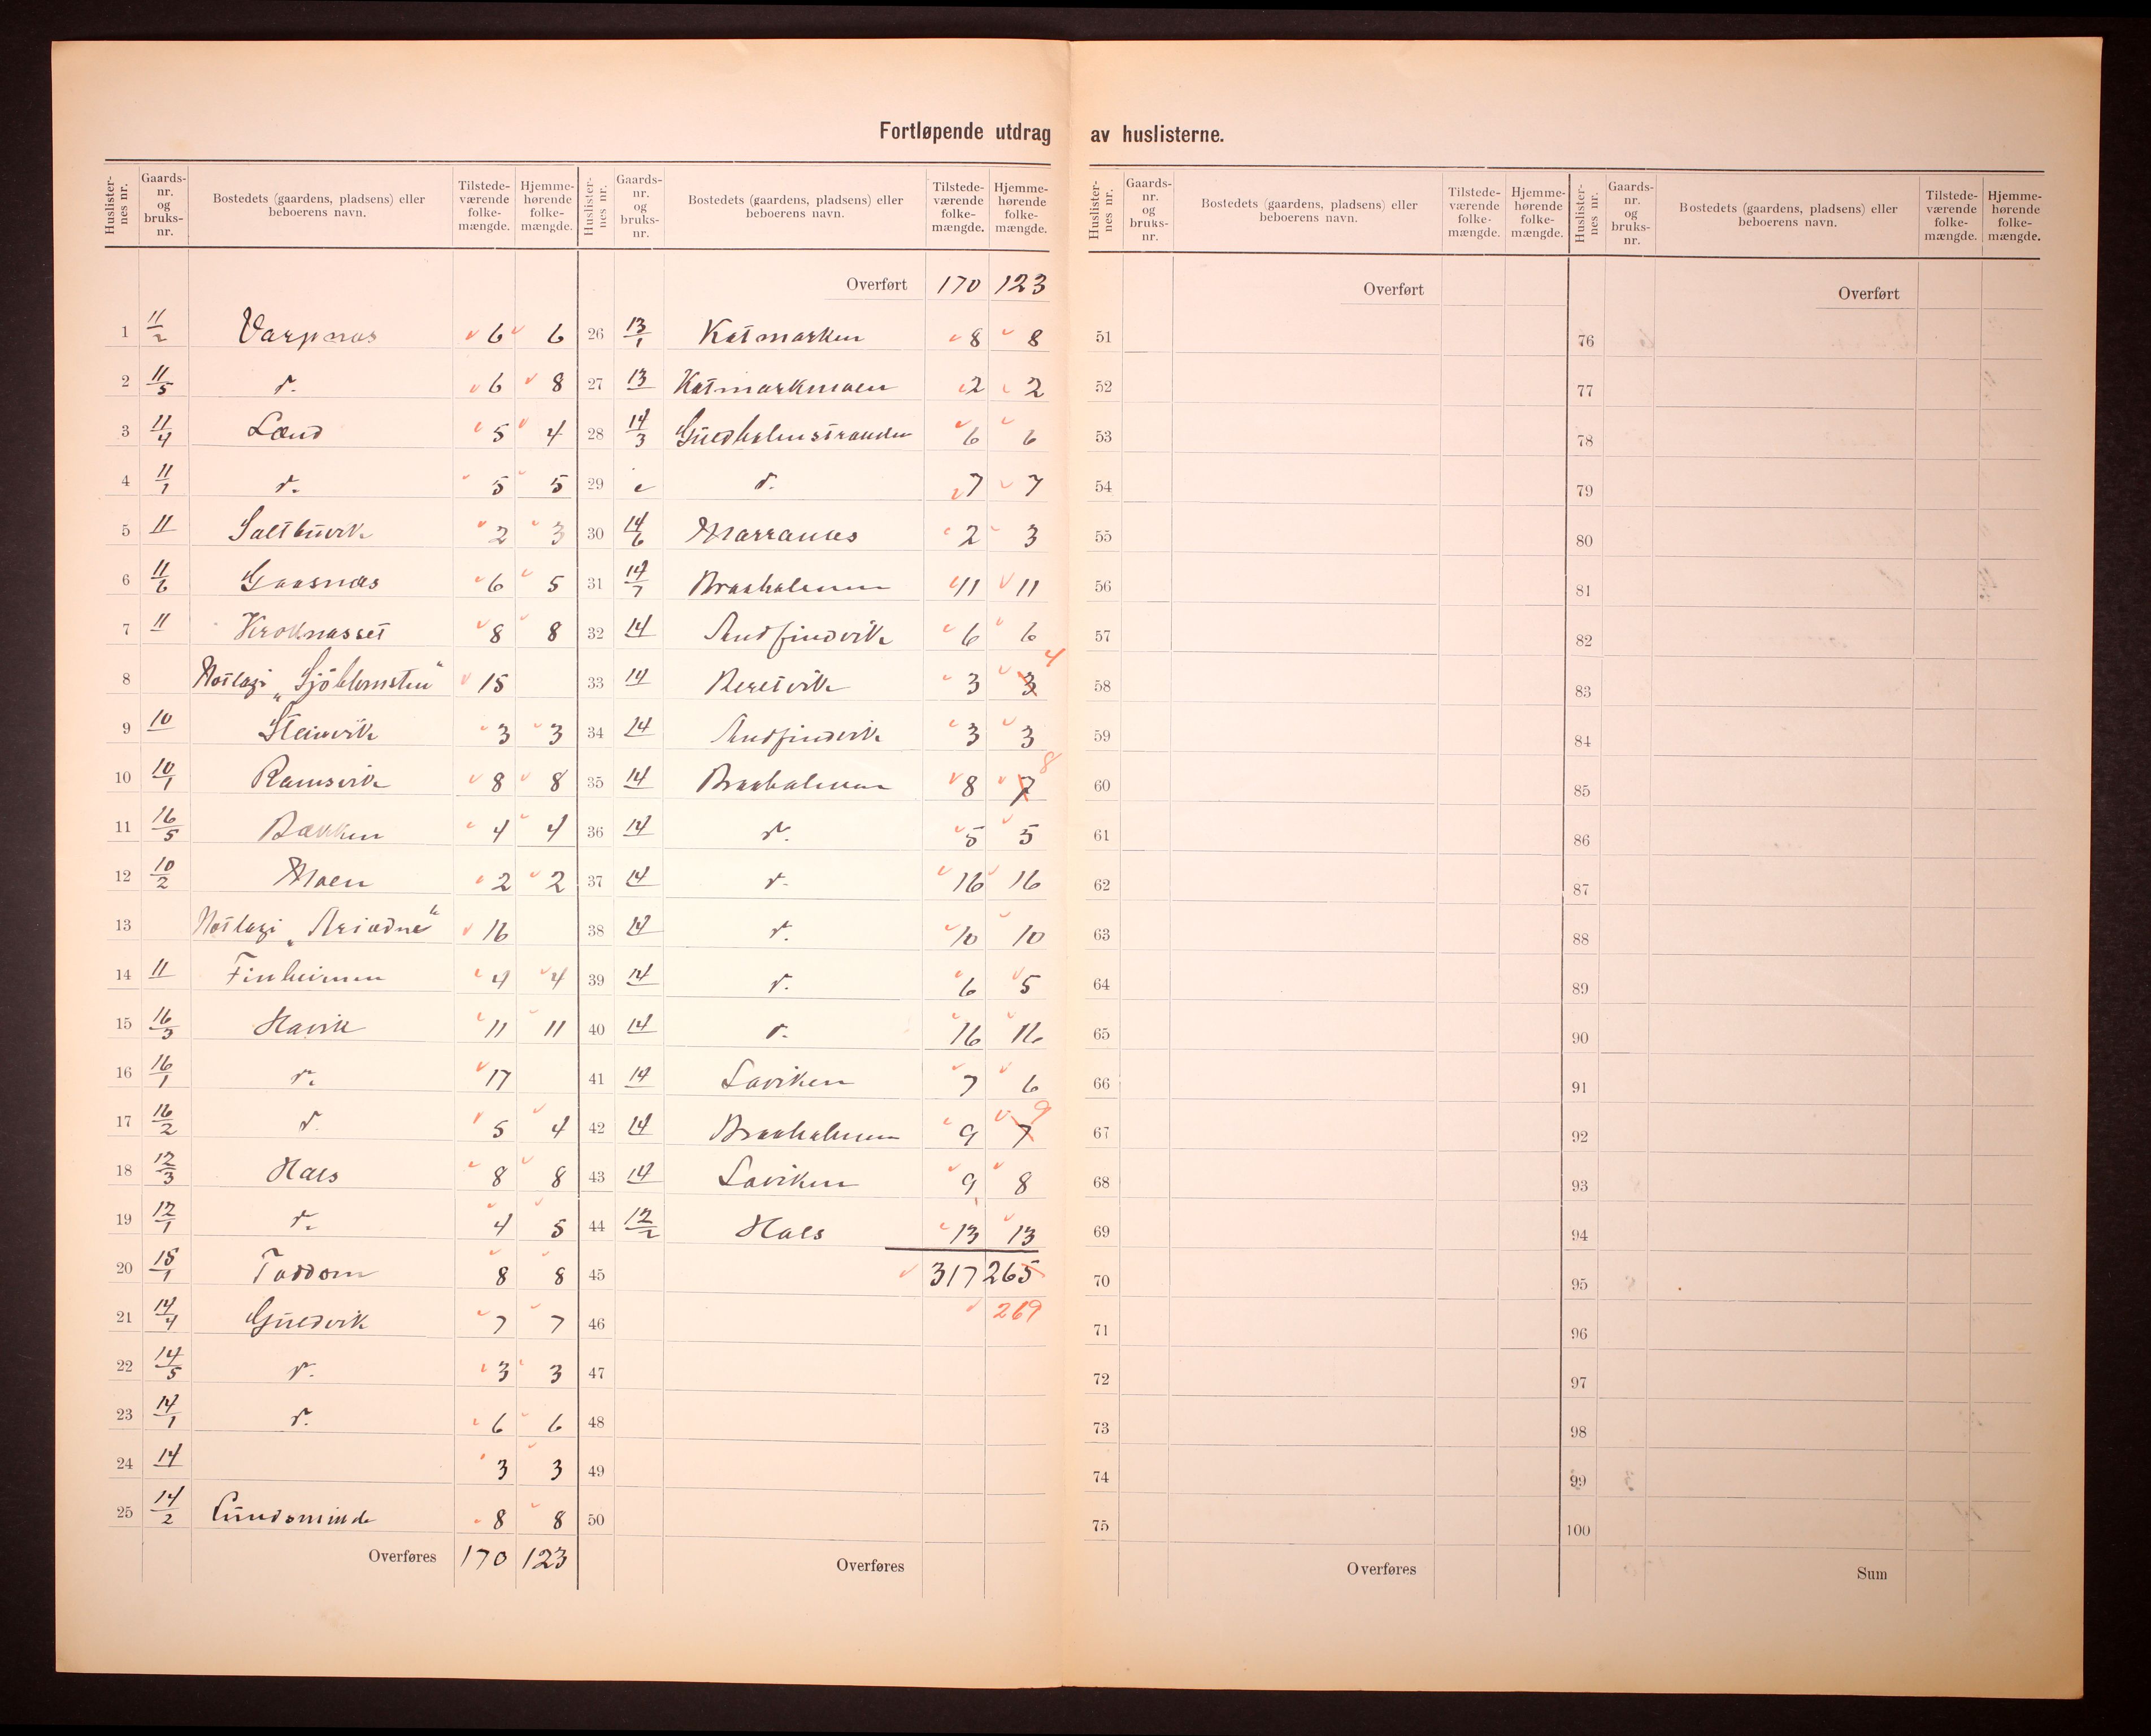 Fortløpende utdrag av huslisterne.
Huslisternes nr. Gaards-nr. og bruks-nr. Bostedets (gaardens, pladsens) eller beboerens navn. Tilstede-værende folke-mængde. Hjemme-hørende folke-mængde.
1 11/2 Varpnæs 6 6
2 11/5 d. 6 8
3 11/4 Lænd 5 4
4 11/1 d. 5 5
5 11 Saltbuvik 2 3
6 11/6 Gaasnæs 6 5
7 11 Kroknesset 8 8
8 Notlag i „Sjöblomsten“ 15
9 10 Steinvik 3 3
10 10/1 Ramsvik 8 8
11 16/5 Bakken 4 4
12 10/2 Moen 2 2
13 Notlag i „Ariadne“ 16
14 11 Finheimen 4 4
15 16/3 Havik 11 11
16 16/1 d. 17
17 16/2 d. 5 4
18 12/3 Hals 8 8
19 12/1 d. 4 5
20 15/1 Taddom 8 8
21 14/4 Guldvik 7 7
22 14/5 d. 3 3
23 14/1 d. 6 6
24 14 3 3
25 14/2 Lundsminde 8 8
Overføres 170 123
Huslisternes nr. Gaards-nr. og bruks-nr. Bostedets (gaardens, pladsens) eller beboerens navn. Tilstede-værende folke-mængde. Hjemme-hørende folke-mængde.
Overført 170 123
26 13/1 Katmarken 8 8
27 13 Katmarkmoen 2 2
28 14/3 Guldholmstranden 6 6
29 d. 7 7
30 14/6 Marranes 2 3
31 14/7 Braaholmen 11 11
32 14 Andfindvik 6 6
33 14 3 3 4
34 14 Andfindvik 3 3
35 14 Braaholmen 8 7 8
36 14 d. 5 5
37 14 d. 16 16
38 14 d. 10 10
39 14 d. 6 5
40 14 d. 16 16
41 14 Laviken 7 6
42 14 Braaholmen 9 7 9
43 14 Laviken 9 8
44 12/2 Hals 13 13
45 317 265
46 269
47
48
49
50
Overføres
Huslister-nes nr. Gaards-nr. og bruks-nr. Bostedets (gaardens, pladsens) eller beboerens navn. Tilstede-værende folke-mængde. Hjemme-hørende folke-mængde.
Overført
51
52
53
54
55
56
57
58
59
60
61
62
63
64
65
66
67
68
69
70
71
72
73
74
75
Overføres
Huslister-nes nr. Gaards-nr. og bruks-nr. Bostedets (gaardens, pladsens) eller beboerens navn. Tilstede-værende folke-mængde. Hjemme-hørende folke-mængde.
Overført
76
77
78
79
80
81
82
83
84
85
86
87
88
89
90
91
92
93
94
95
96
97
98
99
100
Sum